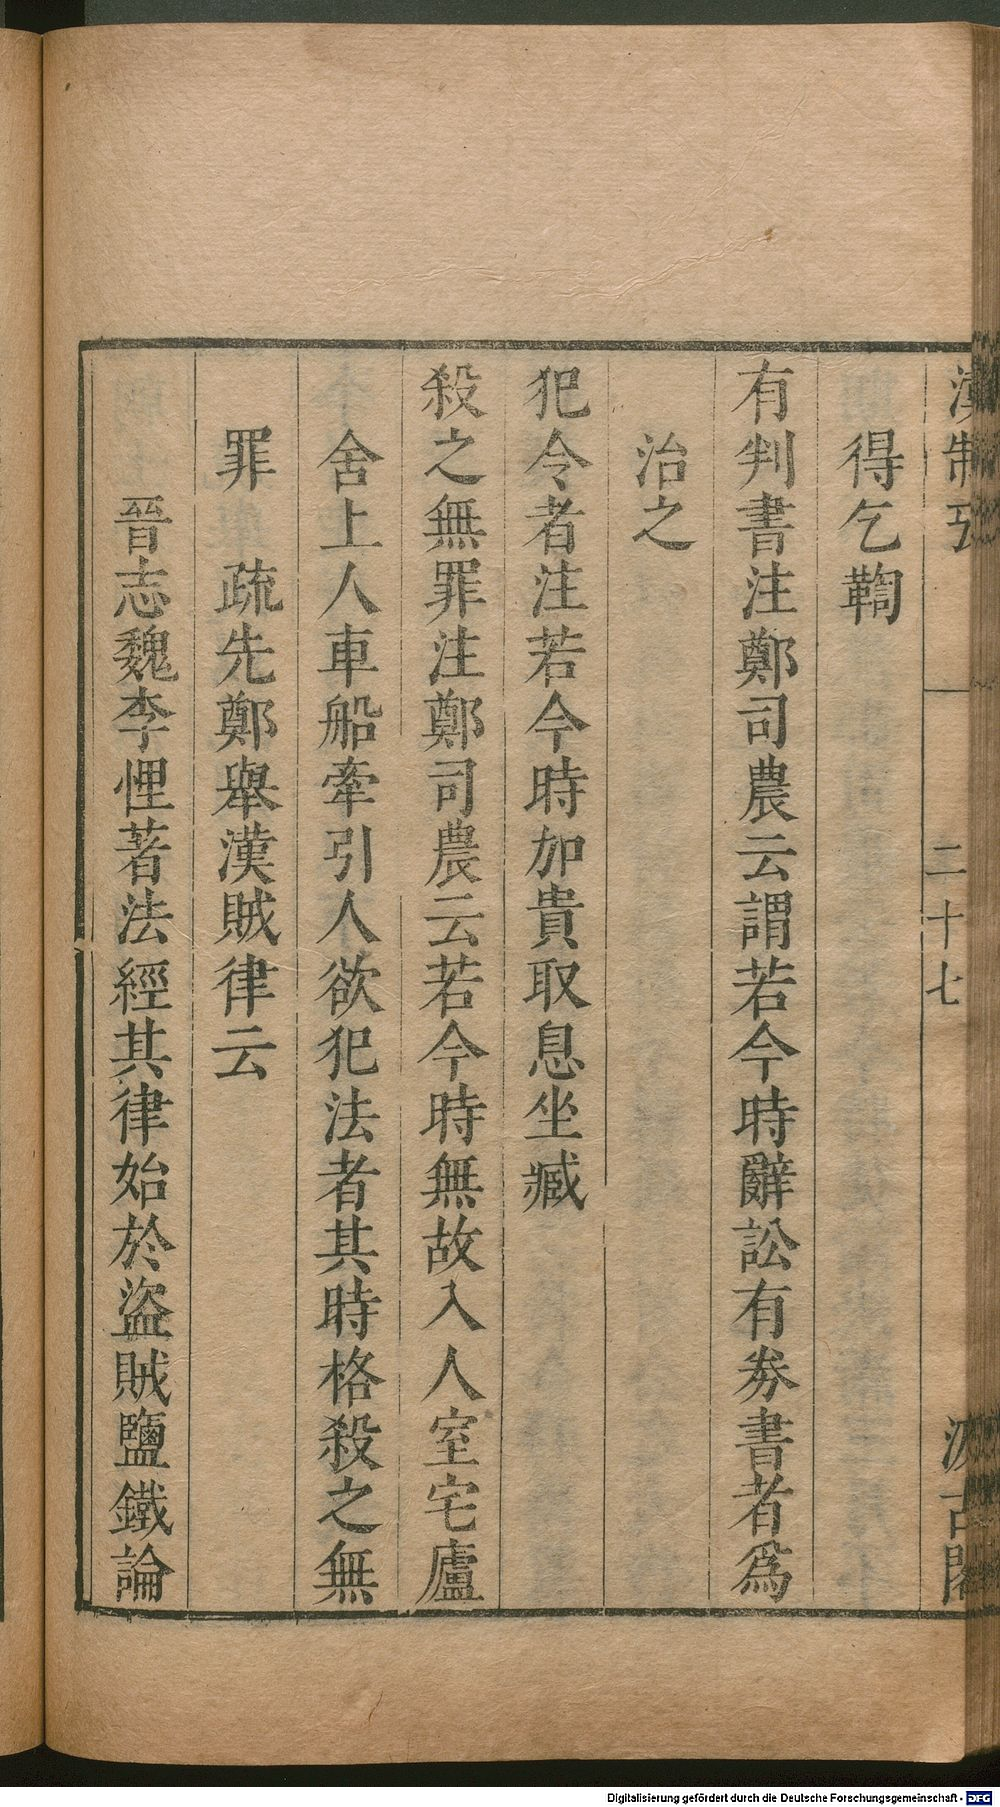 漢制攷
二十七
汲古閣
得乞鞫
有判書注鄭司農云謂若今時辭訟有券書者爲
治之
犯令者注若今時加貴取息坐臧
殺之無罪注鄭司農云若今時無故入人室宅廬
舍上人車船牽引人欲犯法者其時格殺之無
罪　疏先鄭舉漢賊律云
晉志魏李悝著法經其律始於盜賊鹽鐵論
Digitalisierung gefördert durch die Deutsche Forschungsgemeinschaft - DFG